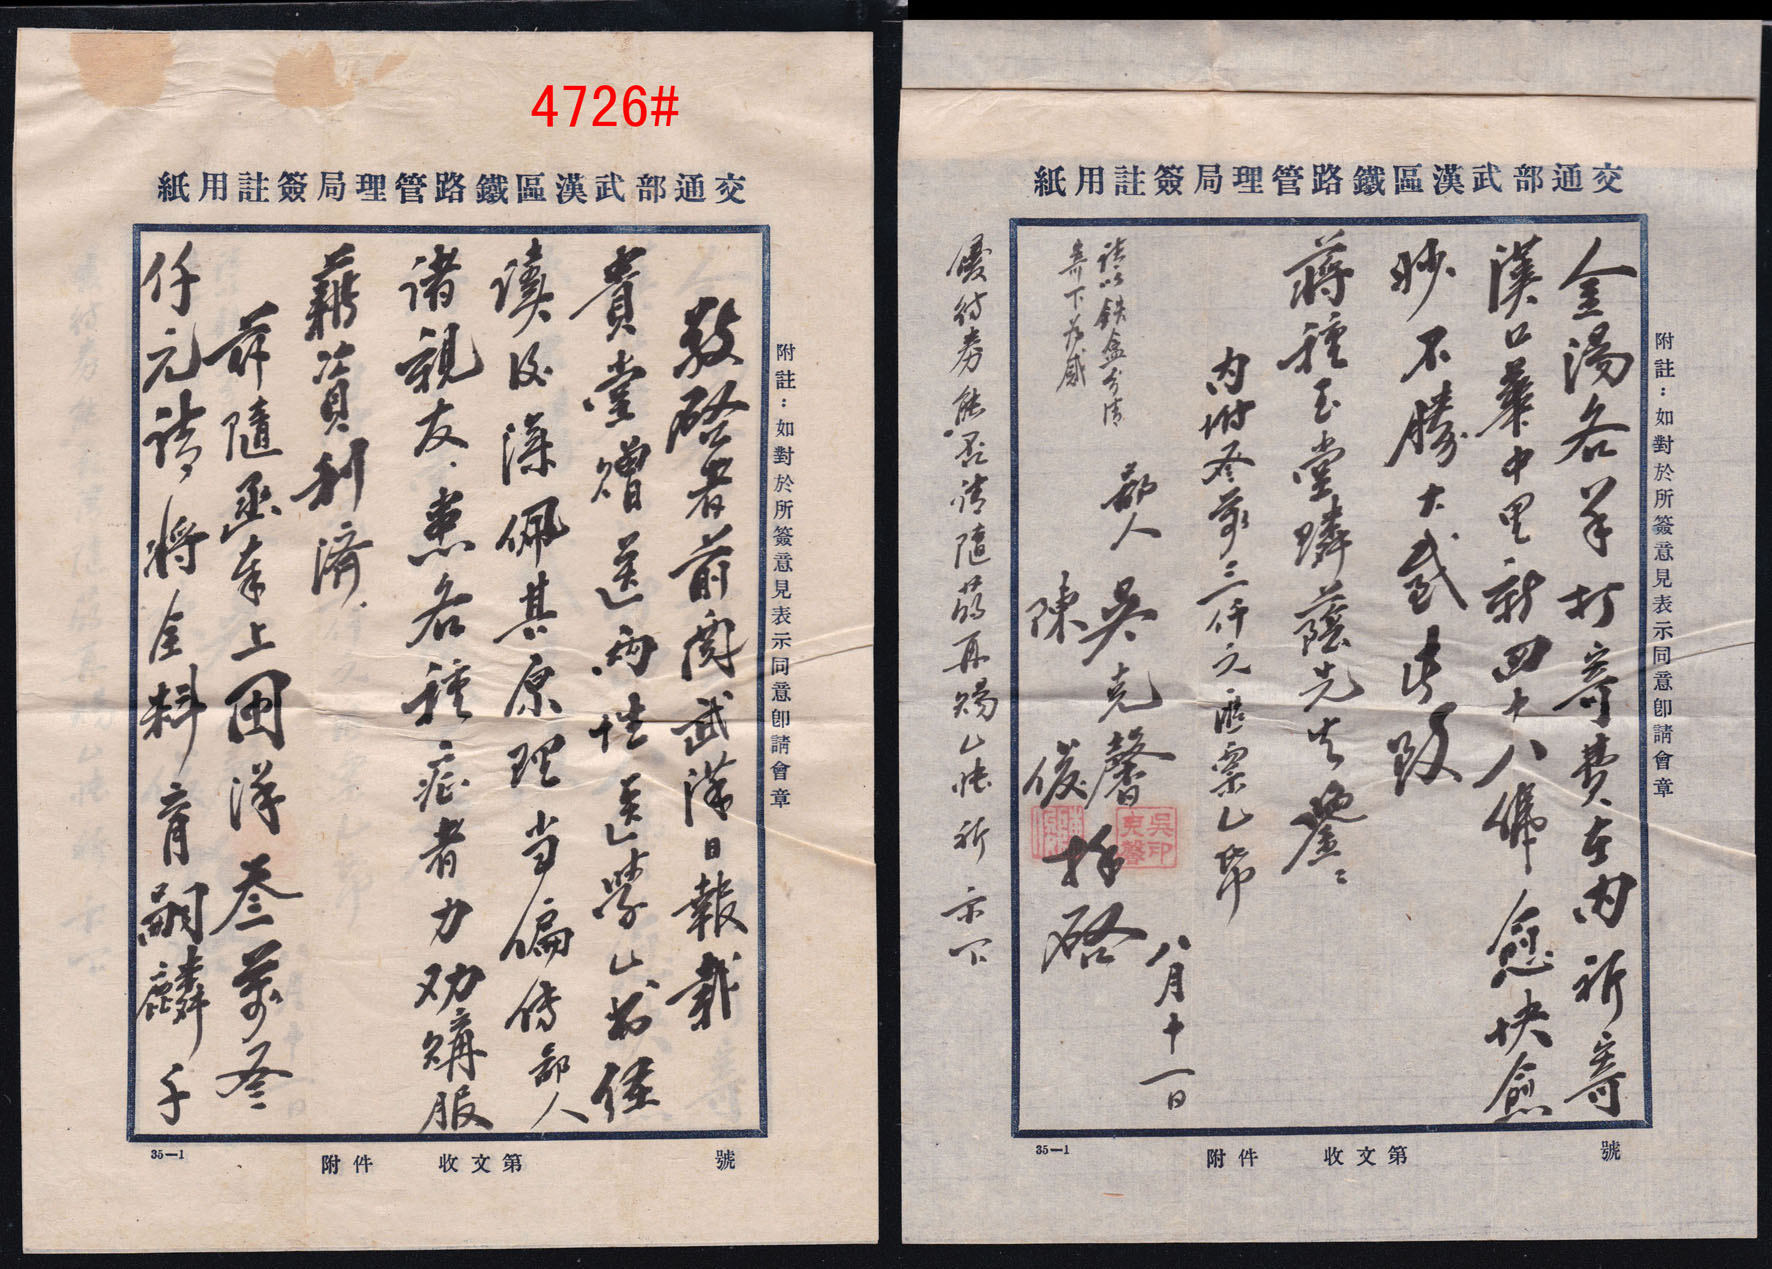 4726#
交通部武漢區鐵路管理局簽註用紙
附註：如對於所簽意見表示同意卽請會章
敬啓者前閱武漢日報載
貴堂贈送兩性醫學書經
讀後深佩其原理當徧傳鄙人
諸親友患各種症者力劝購服
藉資利濟
茲隨函奉上國洋叁萬叁
仟元請將全料育嗣麟子
號
收文第
附件
35—1
交通部武漢區鐵路管理局簽註用紙
附註：如對於所簽意見表示同意卽請會章
金湯各羊打寄費在内祈寄
漢口華中里新四十八佛愈快愈
妙不勝大感此致
蔣種玉堂麟蔭先生鑒
内附叁萬三仟元滙票乙帋
八月十一日
鄙人吳克馨
陳俊拜啓
吳克馨印
請以鉄盒
寄下为感
優待券能否請隨葯再賜乙张祈示下
號
收文第
附件
35—1